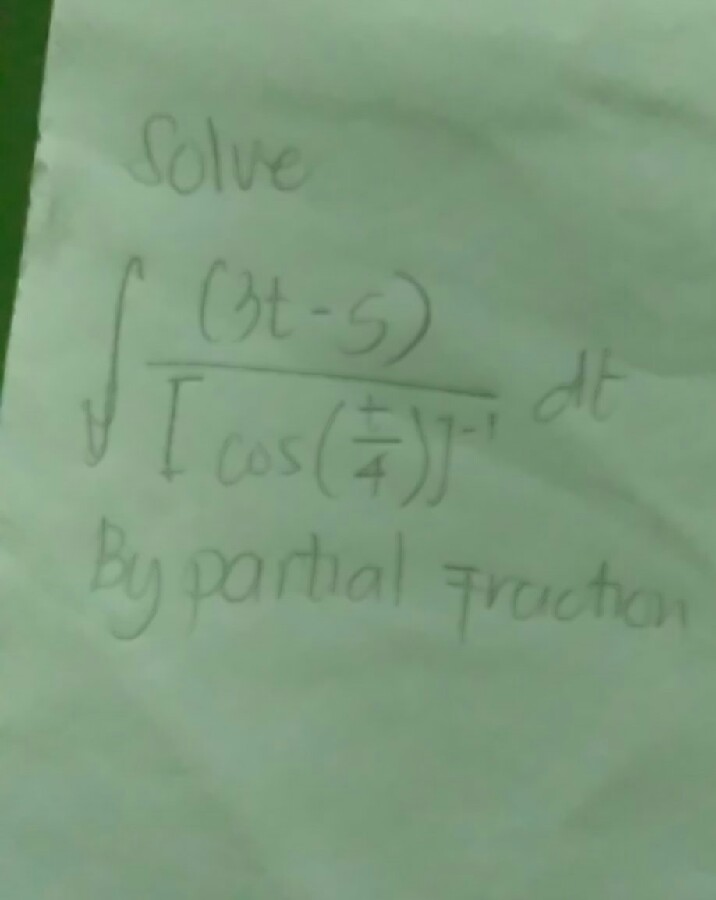 Solve
∫ (3t-5) / [cos(t/4)]^-1 dt
By partial Fraction